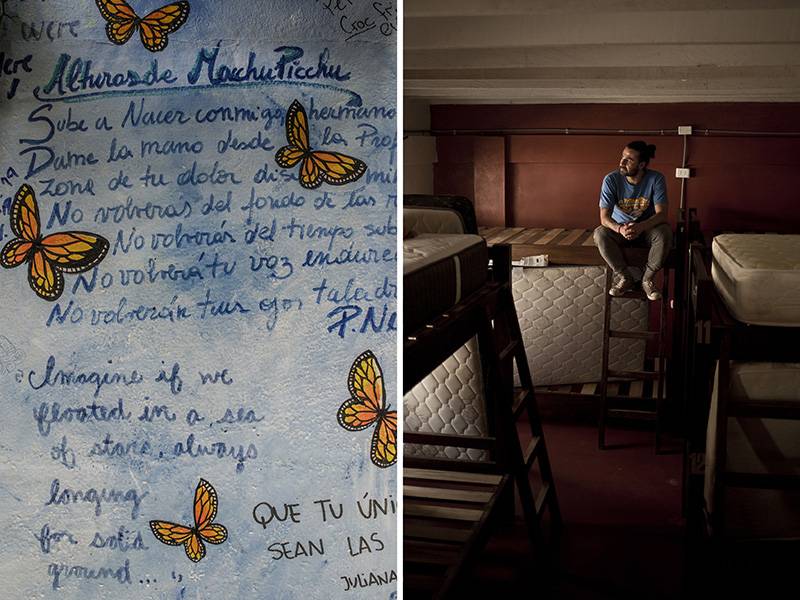 were
Alturas de Macchu Picchu
Sube a Nacer conmigo, hermano
Dame la mano desde la Prof
zona de tu dolor dise mi
No volverás del fondo de las r
No volverás del tiempo sub
No volverá tu voz endurec
No volverán tus ojos taladr
P. Ne
Imagine if we
floated in a sea
of stars, always
longing
for solid
ground...
QUE TU ÚNI
SEAN LAS
JULIANA
11